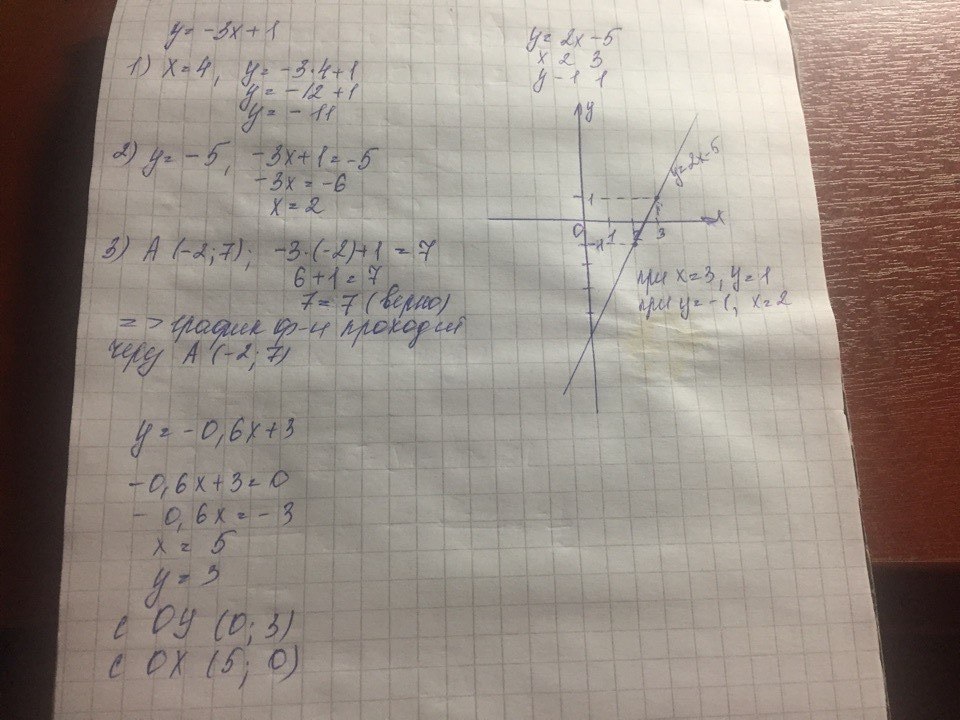 y = -3x+1
1) x=4, y = -3·4+1
y = -12 +1
y = -11
2) y = -5, -3x+1=-5
-3x = -6
x = 2
3) A (-2; 7); -3·(-2)+1 = 7
6+1 = 7
7 = 7 (верно)
=> график ф-и проходит
через A (-2; 7)
y = -0,6x+3
-0,6x+3=0
- 0,6x = -3
x = 5
y = 3
с OY (0; 3)
с OX (5; 0)
y = 2x-5
x 2 3
y -1 1
y
y=2x-5
1
x
0 1 2 3
-1
при x=3, y=1
при y=-1, x=2